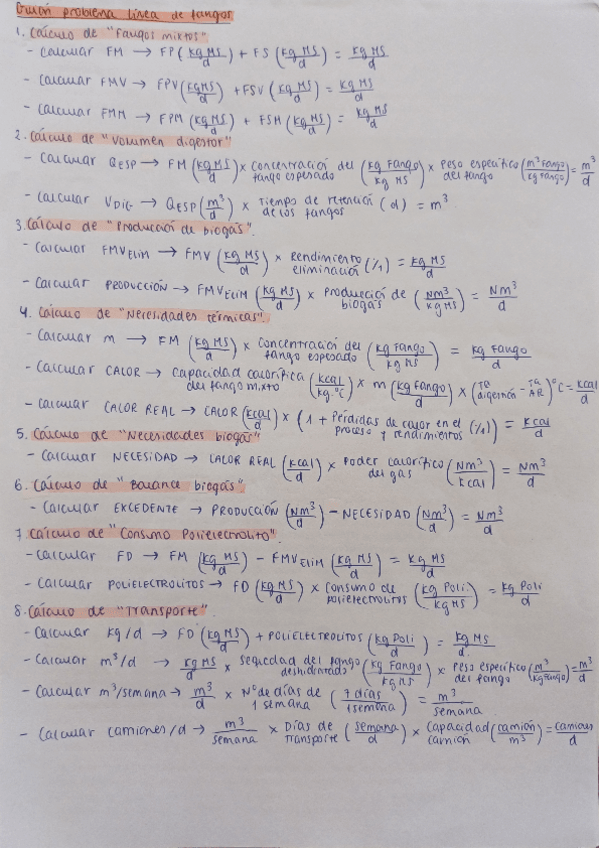 Guión problema línea de fangos
1. Cálculo de "Fangos mixtos"
- Calcular FM → FP (kg MS/d) + FS (kg MS/d) = kg MS/d
- Calcular FMV → FPV (kg MS/d) + FSV (kg MS/d) = kg MS/d
- Calcular FMM → FPM (kg MS/d) + FSM (kg MS/d) = kg MS/d
2. Cálculo de "Volumen digestor"
- Calcular QESP → FM (kg MS/d) × Concentración del fango espesado (kg Fango/kg MS) × Peso específico del fango (m³ Fango/kg Fango) = m³/d
- Calcular VDIG → QESP (m³/d) × Tiempo de retención de los fangos (d) = m³
3. Cálculo de "Producción de biogás".
- Calcular FMVELIM → FMV (kg MS/d) × Rendimiento eliminación (%1) = kg MS/d
- Calcular PRODUCCIÓN → FMVELIM (kg MS/d) × Producción de biogás (Nm³/kg MS) = Nm³/d
4. Cálculo de "Necesidades térmicas".
- Calcular m → FM (kg MS/d) × Concentración del fango espesado (kg Fango/kg MS) = kg Fango/d
- Calcular CALOR → Capacidad calorífica del fango mixto (kcal/kg·°C) × m (kg Fango/d) × (Tª digestión - Tª AR) °C = kcal/d
- Calcular CALOR REAL → CALOR (kcal/d) × (1 + Pérdidas de calor en el proceso y rendimientos (%1)) = kcal/d
5. Cálculo de "Necesidades biogás"
- Calcular NECESIDAD → CALOR REAL (kcal/d) × Poder calorífico del gas (Nm³/kcal) = Nm³/d
6. Cálculo de "Balance biogás".
- Calcular EXCEDENTE → PRODUCCIÓN (Nm³/d) - NECESIDAD (Nm³/d) = Nm³/d
7. Cálculo de "Consumo Polielectrolito"
- Calcular FD → FM (kg MS/d) - FMVELIM (kg MS/d) = kg MS/d
- Calcular POLIELECTROLITOS → FD (kg MS/d) × Consumo de polielectrolitos (kg Poli./kg MS) = kg Poli/d
8. Cálculo de "Transporte".
- Calcular kg/d → FD (kg MS/d) + POLIELECTROLITOS (kg Poli/d) = kg MS/d.
- Calcular m³/d → kg MS/d × Sequedad del fango deshidratado (kg Fango/kg MS) × Peso específico del fango (m³/kg Fango) = m³/d
- Calcular m³/semana → m³/d × Nº de días de 1 semana (7 días/1 semana) = m³/semana
- Calcular camiones/d → m³/semana × Días de transporte (semana/d) × Capacidad camión (camión/m³) = camiones/d